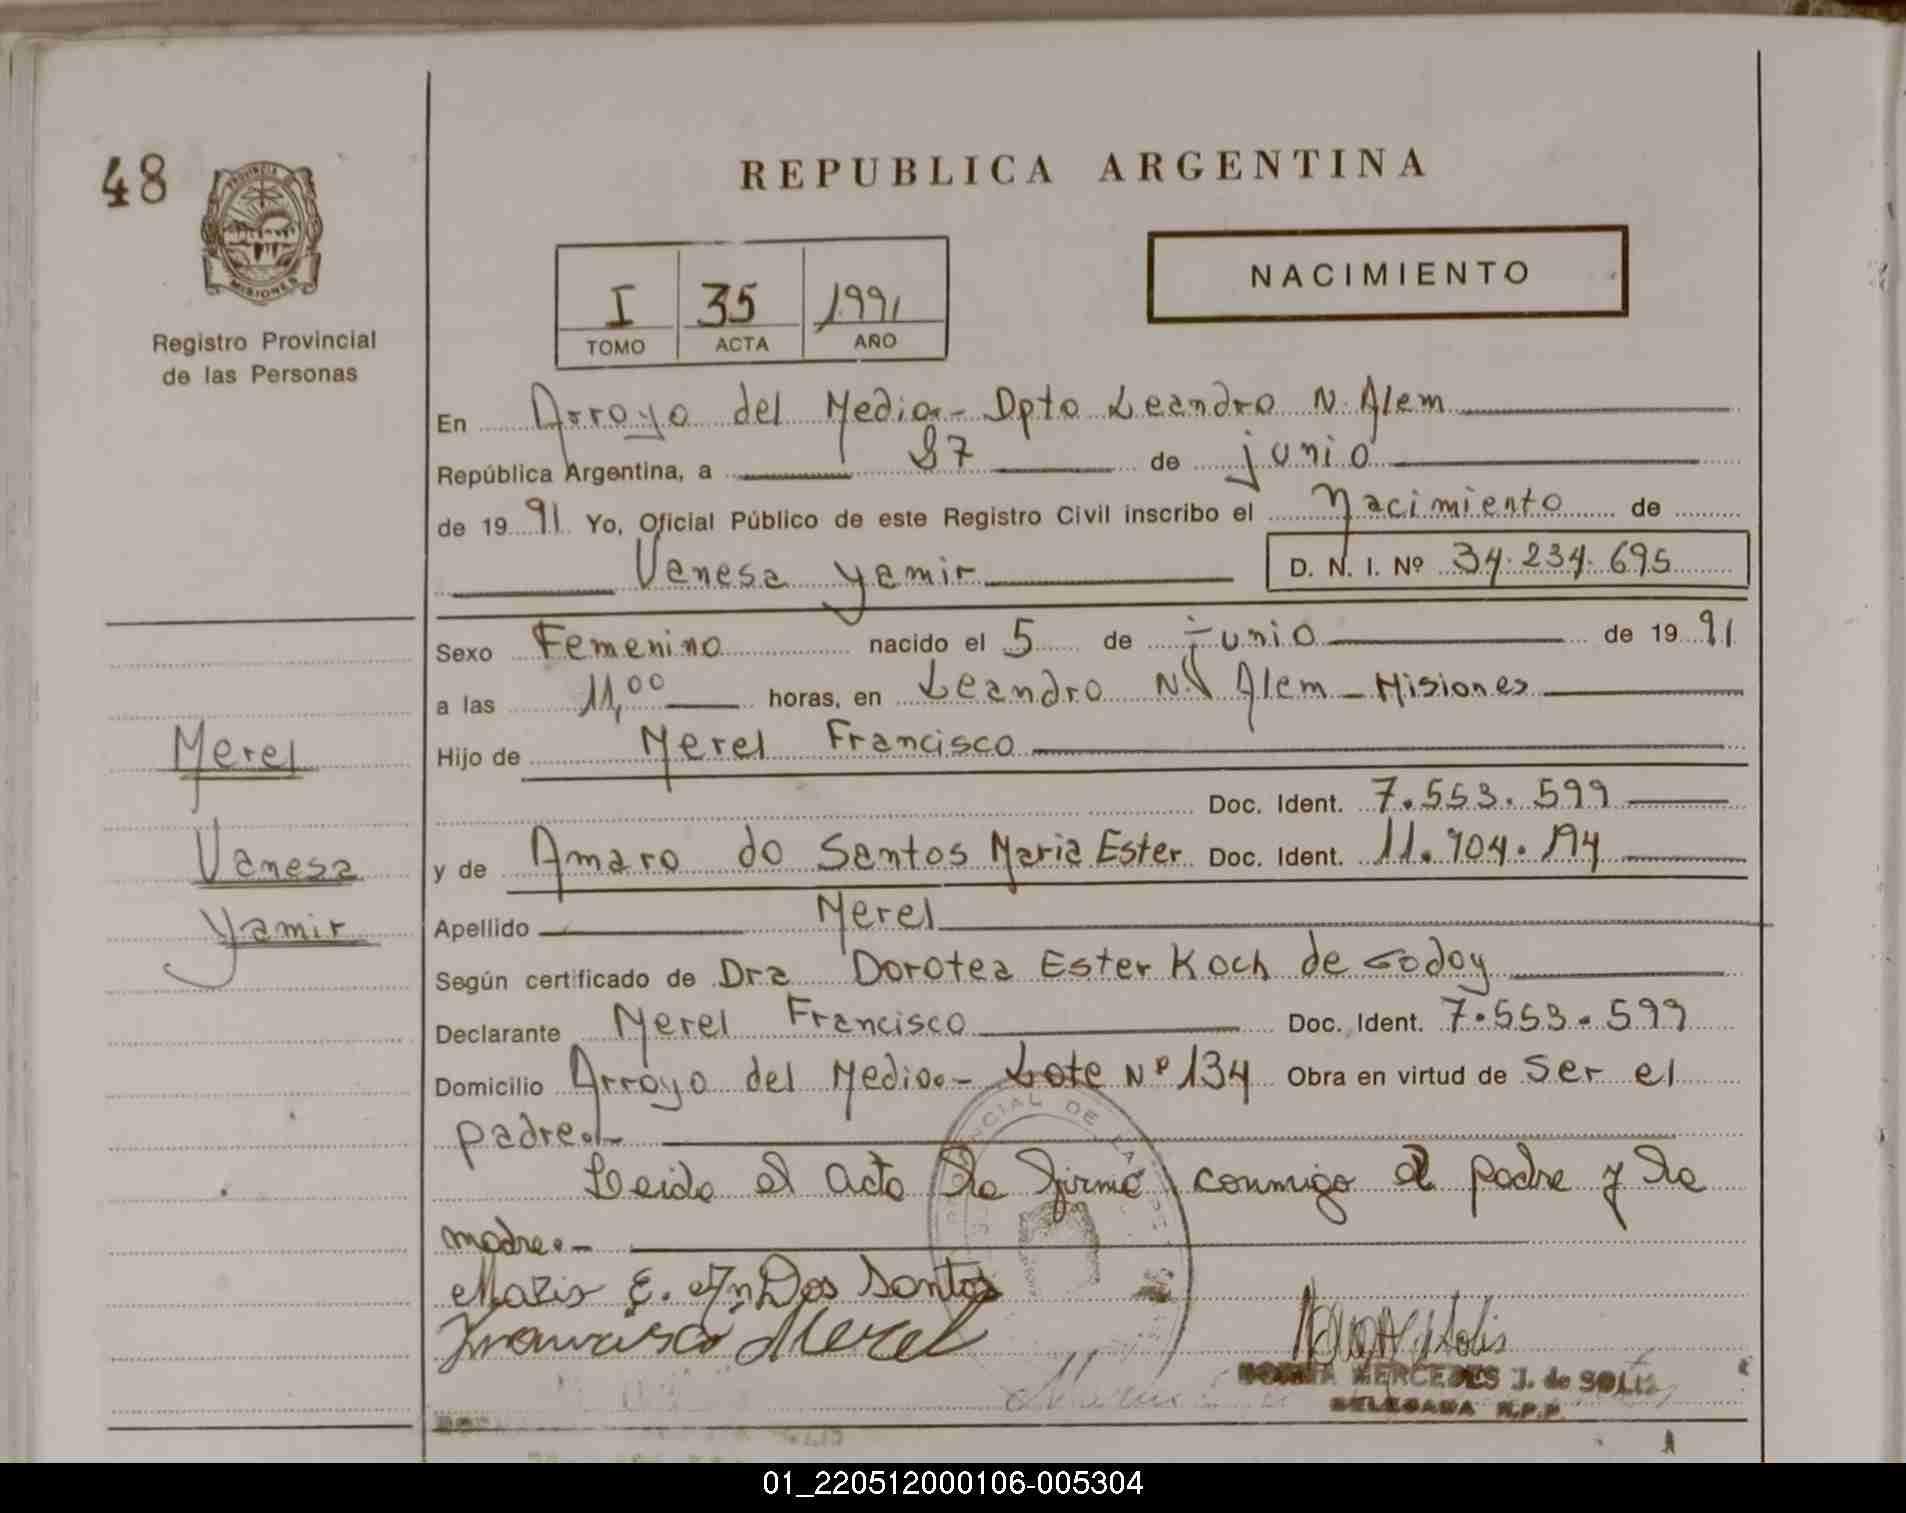 48
PROVINCIA
MISIONES
Registro Provincial
de las Personas
REPUBLICA ARGENTINA
NACIMIENTO
I 35 1991
TOMO ACTA AÑO
En Arroyo del Medio.- Dpto Leandro N. Alem
República Argentina, a 27 de junio
de 1991 Yo, Oficial Público de este Registro Civil inscribo el Nacimiento de
Vanesa Yamir D. N. I. Nº 34.234.695
Sexo Femenino nacido el 5 de junio de 1991
a las 11,00 horas, en Leandro N. Alem - Misiones
Hijo de Merel Francisco
Doc. Ident. 7.553.599
y de Amaro do Santos Maria Ester Doc. Ident. 11.904.194
Apellido Merel
Según certificado de Dra Dorotea Ester Koch de Godoy
Declarante Merel Francisco Doc. Ident. 7.553.599
Domicilio Arroyo del Medio.- Lote Nº 134 Obra en virtud de ser el
padre.-
Leida el acta la firma conmigo el padre y la
madre.-
Merel
Vanesa
Yamir
Maria E. Dos Santos
Francisco Merel
MERCEDES J. de SOLIS
DELEGADA R.P.P.
01_220512000106-005304